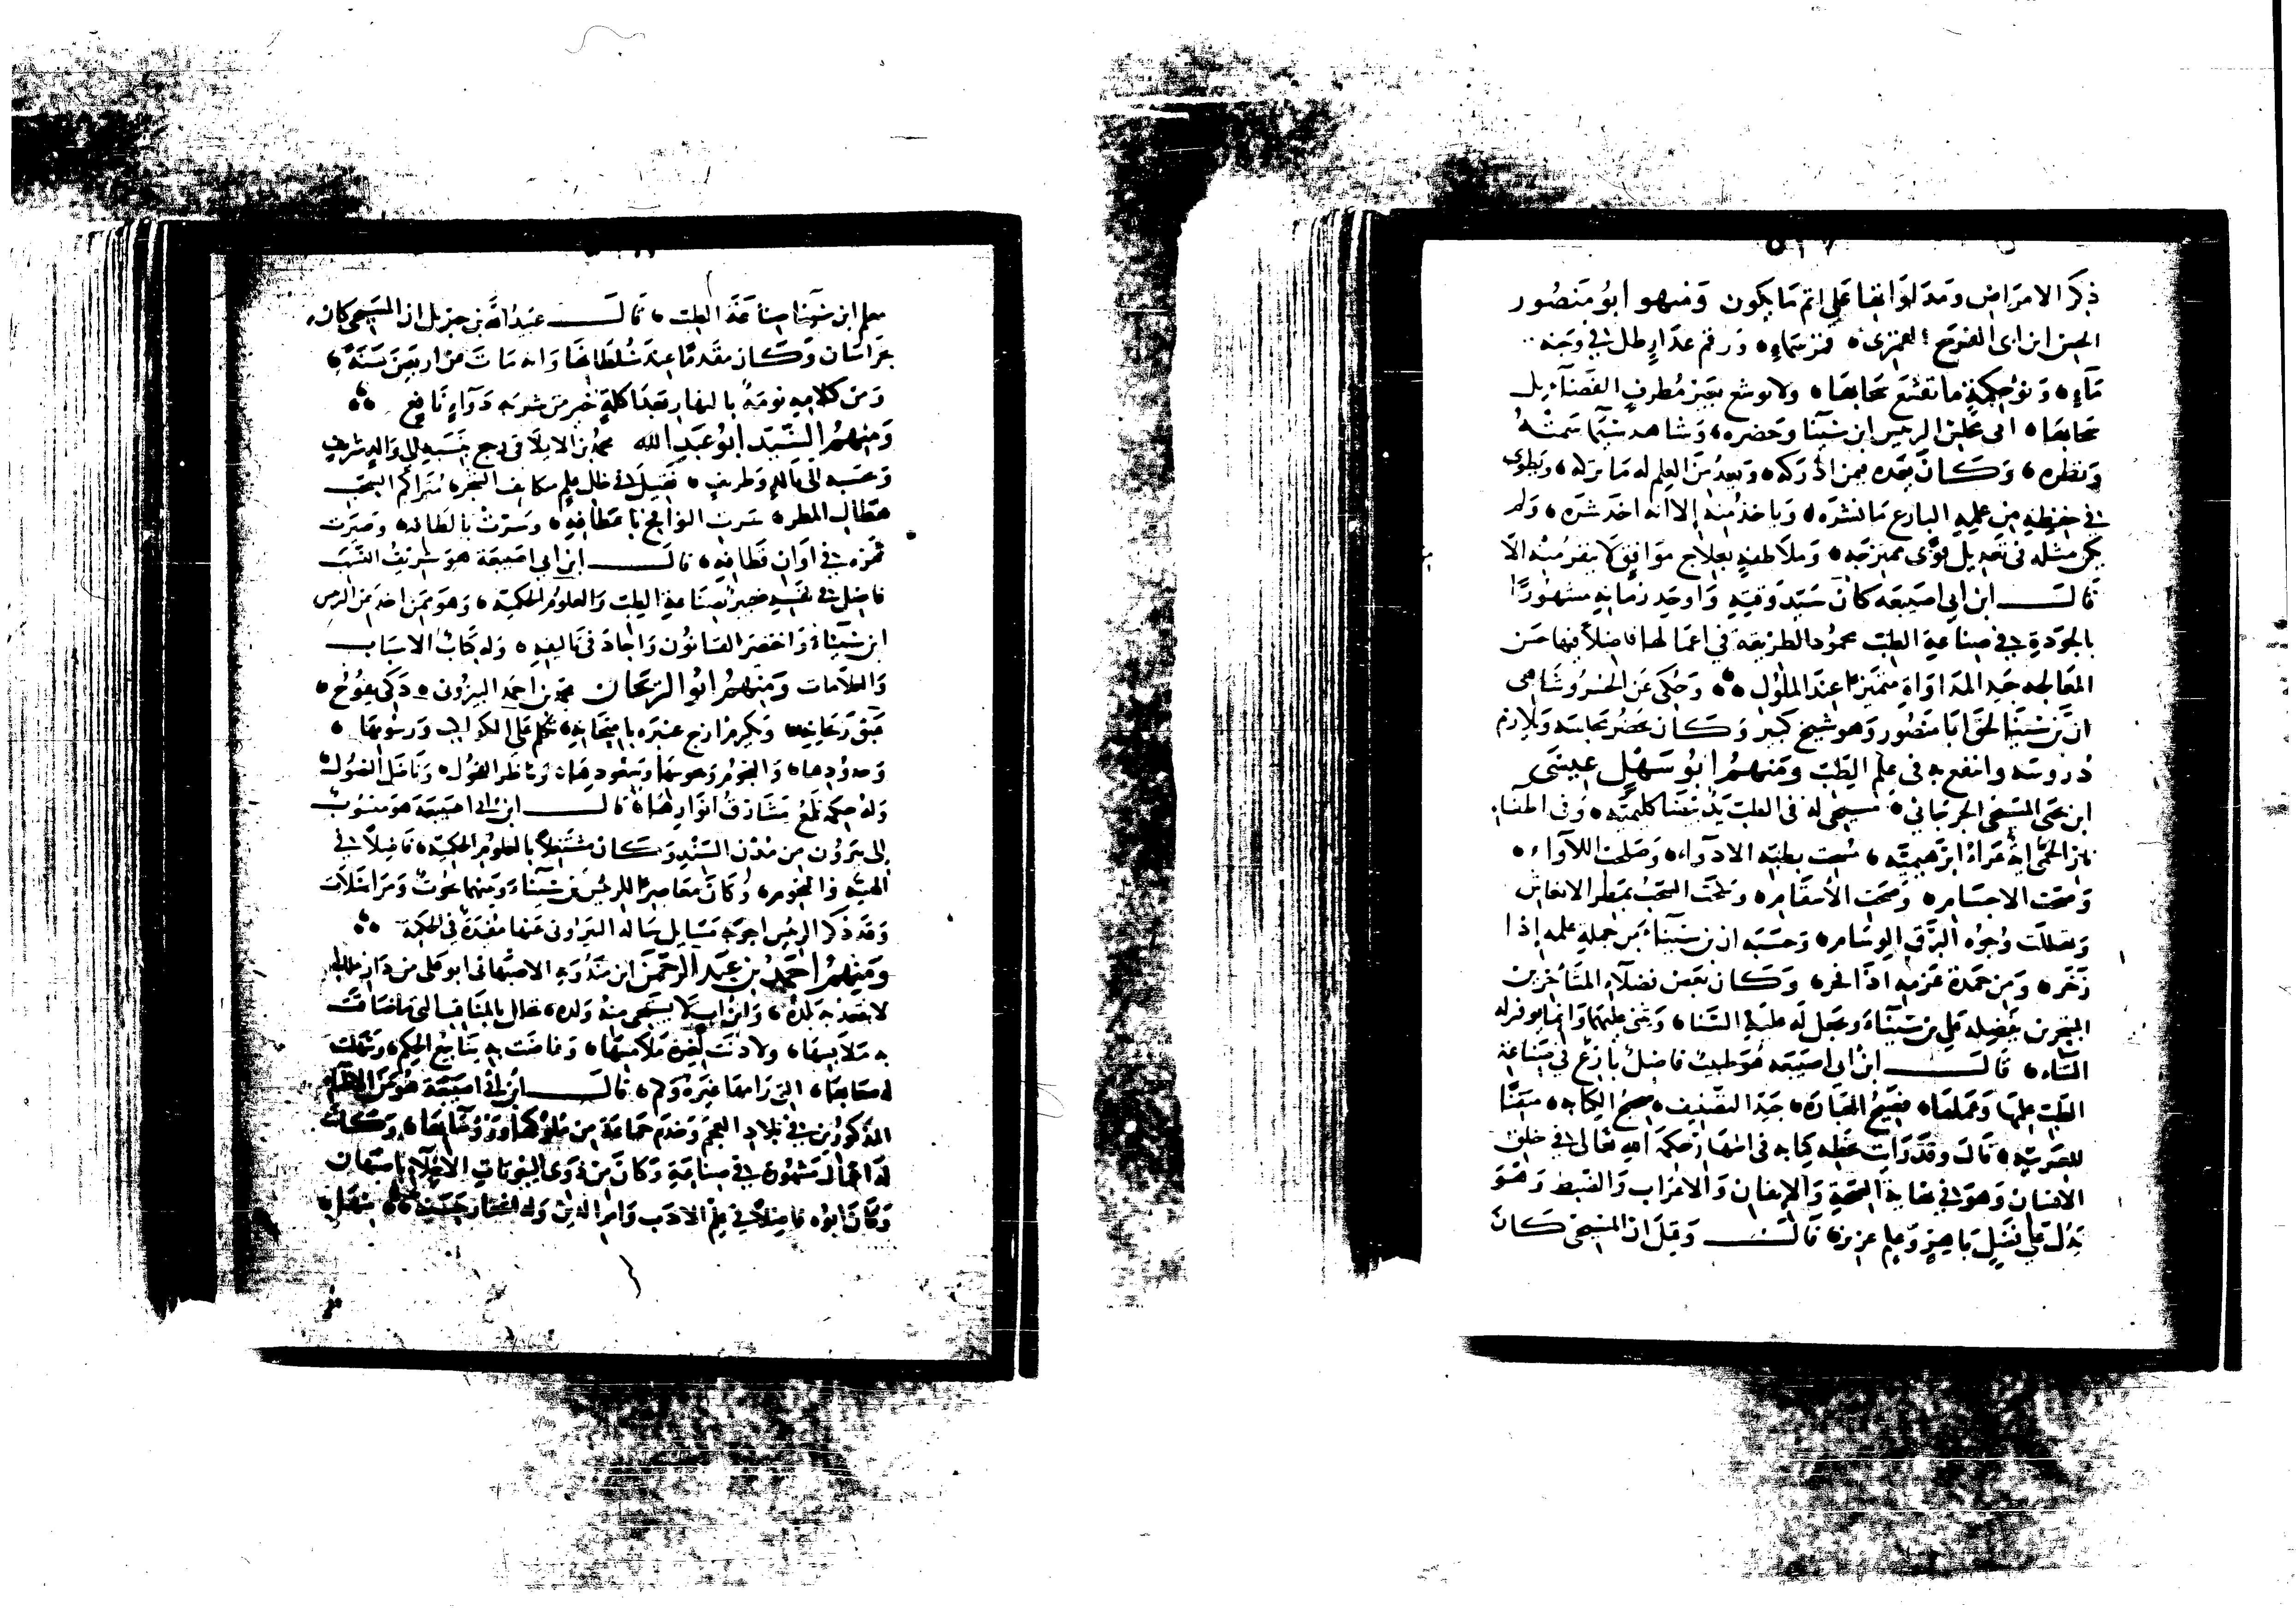 ذكر الامراض ومداواتها على اتم ما يكون ومنهم ابو منصور
الحسن ابن نوح القمري قمر سماء ورقم عذار طل في وجنه
ماء ونو حكمة ما تقشع سحابها ولا توشع بغير مطرف الفضائل
سحابها اتى مجلس الرئيس ابن سينا وحضره وشاهد سيما سمته
ونظره وكان بعده فيمن ادركه وبعد من العلم له ما تركه ويطوى
في حفظه من علمه البارع ما نشره وياخذ منه الا انه اخذ شره ولم
يكن مثله في تعديل قوى ممتزجه وملاطفة بعلاج موافق لا ينفر منه الا
قال ابن ابي اصيبعه كان سيد وقته واوحد زمانه مشهورا
بالجودة في صناعة الطب محمود الطريقة في اعمالها فاضلا فيها حسن
المعالجه جيد المداواة متميزا عند الملوك وحكى عن الخسروشاهى
ان ابن سينا لحق ابا منصور وهو شيخ كبير وكان يحضر مجالسه ويلازم
دروسه وانتفع به في علم الطب ومنهم ابو سهل عيسى
ابن يحيى المسيحي الجرجاني مسيحي له في الطب يد بيضا كليميه وفي اطفاء
نار الحمى اية غراء ابرهيميه
وصحت الاجسام وصحت الاسقام وسحت السحب بمطر الانعاش
وتهللت وجوه البرق الوسام وحسبه ان ابن سيناء من جملة علمه اذا
زخر ومن حمدة عزمه اذا فخر وكان بعض فضلاء المتأخرين
المتبحرين يفضله على بن سيناء ويجعل له عليه السناء ويثنى عليهما وانما يوفر له
الثناء قال ابن ابي اصيبعه هو طبيب فاضل بارع في صناعة
الطب علمها وعملها فصيح العبارة جيد التصنيف صحيح الكتابه متقنا
للعربيه قال وقد رايت بخطه كتابه في اظهار حكمة الله تعالى في خلق
الانسان وهو في نهاية الصحة والاتقان والاعراب والضبط وهو
يدل على فضل باهر وعلم غزير قال وقيل ان المسيحي كان
معلم ابن سينا صناعة الطب قال عبيد الله بن جبريل ان المسيحي كان
بخراسان وكان مقدما عند سلطانها وانه مات عن اربعين سنة
ومن كلامه نومة بالنهار بعد اكلة خير من شربه دواء نافع
ومنهم السيد ابو عبد الله محمد بن الايلاقي رجع حسبه الى والد شريف
وحسبه الى تالد وطريف فضيل في ظلال علم متكاثف الشجر متراكم السحب
هطال المطر سرت النوافح باعطافه وسرت بالطافه وصيرت
ثمره في اوان قطافه قال ابن ابي اصيبعة هو شريف النسب
فاضل في نفسه خبير بصناعة الطب والعلوم الحكميه وهو ممن اخذ عن الرئيس
ابن سيناء واختصر القانون واجاد في تاليفه وله كتاب الاسباب
والعلامات ومنهم ابو الريحان محمد بن احمد البيروني ذكي يفوح
عبق ريحانه ويكرم ارج عنبره بامتحانه تكلم على الكواكب ورسومها
وحدودها والنجوم وهبوطها وسعودها وناظر الفحول وناضل الفضول
وله حكمة تلمع مشارق انوارها قال ابن ابي اصيبعة هو منسوب
الى بيرون من مدن السند وكان مشتغلا بالعلوم الحكميه فاضلا في
الهيئه والنجوم وكان معاصرا للرئيس بن سيناء وبينهما بحوث ومراسلات
وقد ذكر الرئيس اجوبه مسايل ساله البيروني عنها مفيدة في الحكمة
ومنهم احمد بن عبد الرحمن ابن مندويه الاصبهاني ابو على من
لا يعتد به بلده وابن اب لا يستحى منه ولده تحلل بالمناقب التي ما ضافت
به ملابسها ولا دنت لغيره ملامسها وفاضت به ينابيع الحكم وسهلت
له صعابها التي رامها غيره ولم قال ابن ابي اصيبعة هو من الاطباء
المذكورين في بلاد العجم وخدم جماعة من ملوكها ورؤسائها وكانت
له اعمال مشهورة في صناعة وكان من ذوى البيوتات الاجلاء باصبهان
وكان ابوه فاضلا في علم الادب وافر الدين وله اشعار حسنه منها